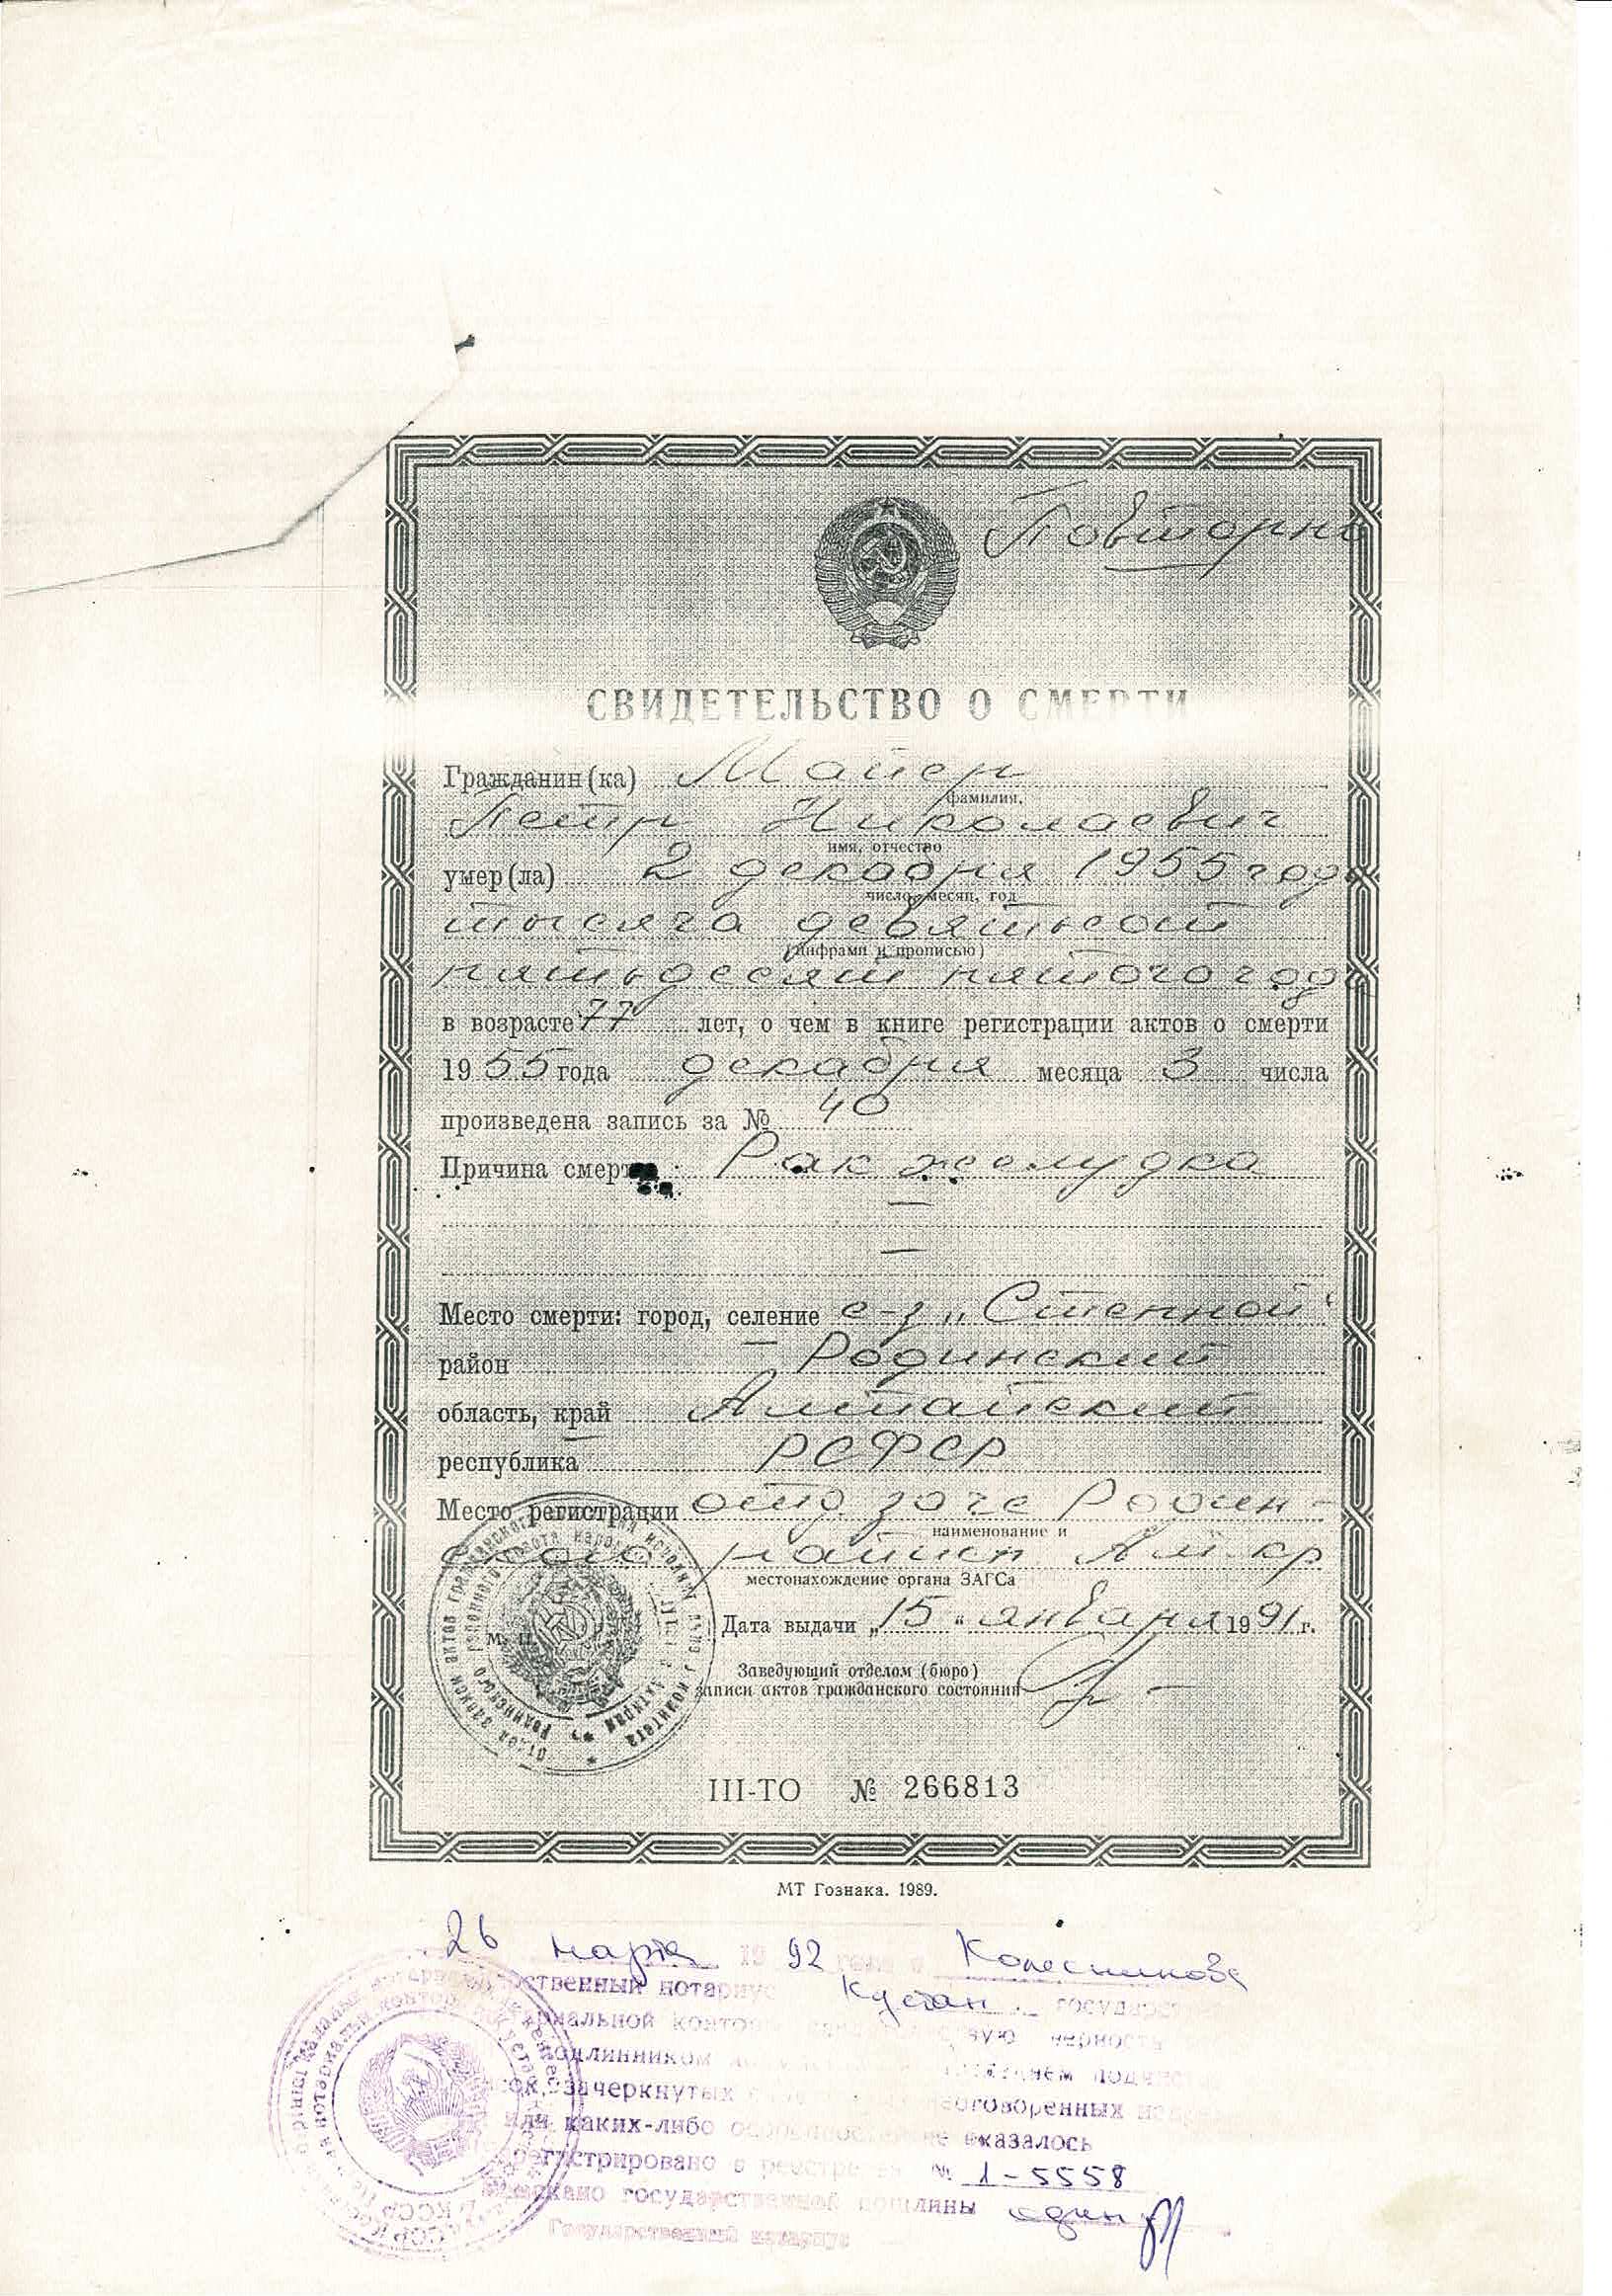 Повторно
СВИДЕТЕЛЬСТВО О СМЕРТИ
Гражданин(ка) Майер
фамилия,
Петр Николаевич
имя, отчество
умер(ла) 2 декабря 1955 года
число, месяц, год
тысяча девятьсот
(цифрами и прописью)
пятьдесят пятого года
в возрасте 77 лет, о чем в книге регистрации актов о смерти
1955 года декабря месяца 3 числа
произведена запись за № 40
Причина смерти: Рак желудка
—
—
Место смерти: город, селение с-з „Степной“
район Родинский
область, край Алтайский
республика РСФСР
Место регистрации отд. загс Родин-
наименование и
ского Алт. кр
местонахождение органа ЗАГСа
М. П.
Дата выдачи „15“ января 1991 г.
Заведующий отделом (бюро)
записи актов гражданского состояния
III-ТО № 266813
МТ Гознака. 1989.
26 марта 1992 года я Колесникова
государственный нотариус Кустан. государст
нотариальной конторы верность
подлинником
зачеркнутых неоговоренных
или каких-либо особенностей не оказалось
Зарегистрировано в реестре за № 1-5558
Взыскано государственной пошлины один р
Государственный нотариус